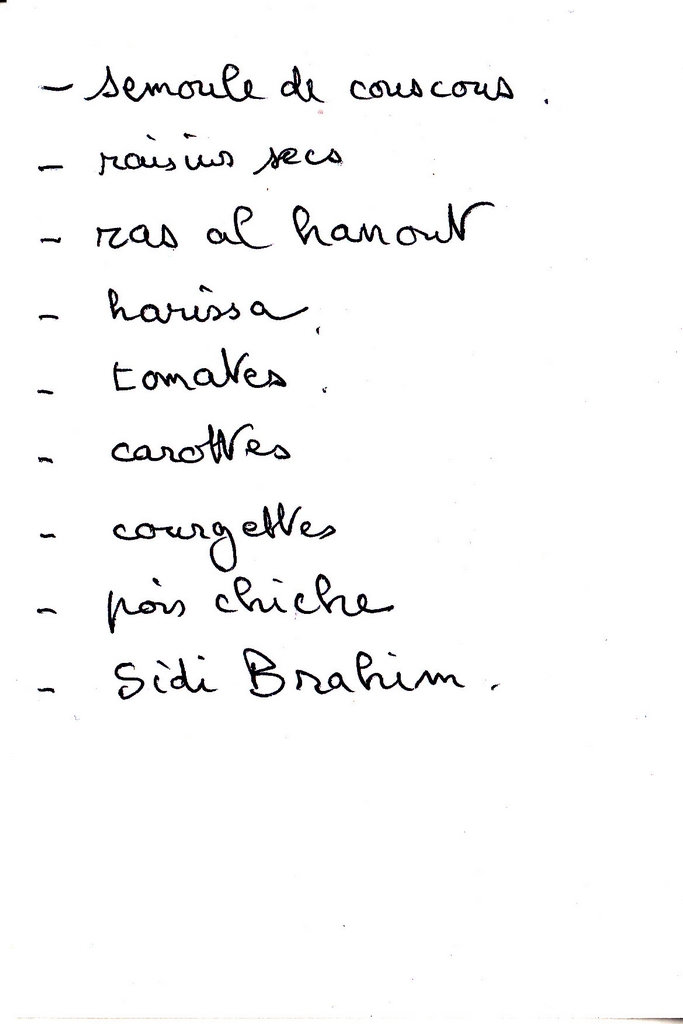 - semoule de couscous .
- raisins secs
- ras al hanout
- harissa .
- tomates .
- carottes
- courgettes
- pois chiche
- Sidi Brahim .